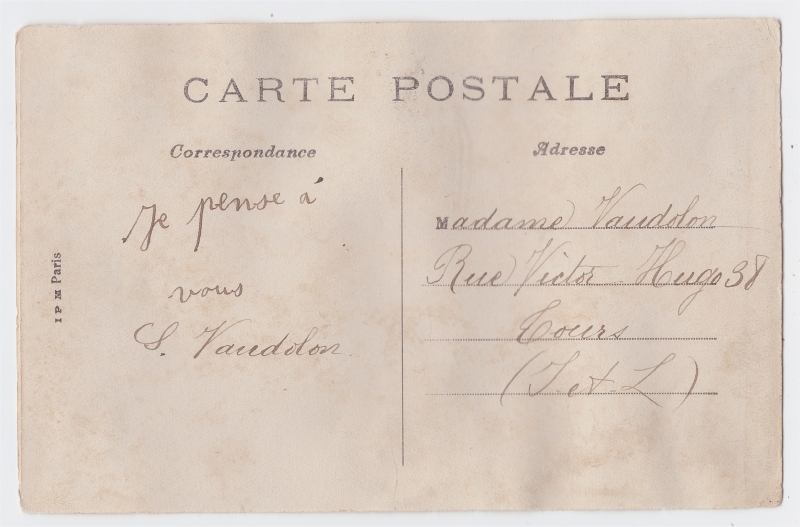 CARTE POSTALE
Correspondance
Je pense à
vous
S. Vaudolon
Adresse
Madame Vaudolon
Rue Victor Hugo 38
Tours
(I. et. L)
I P M Paris